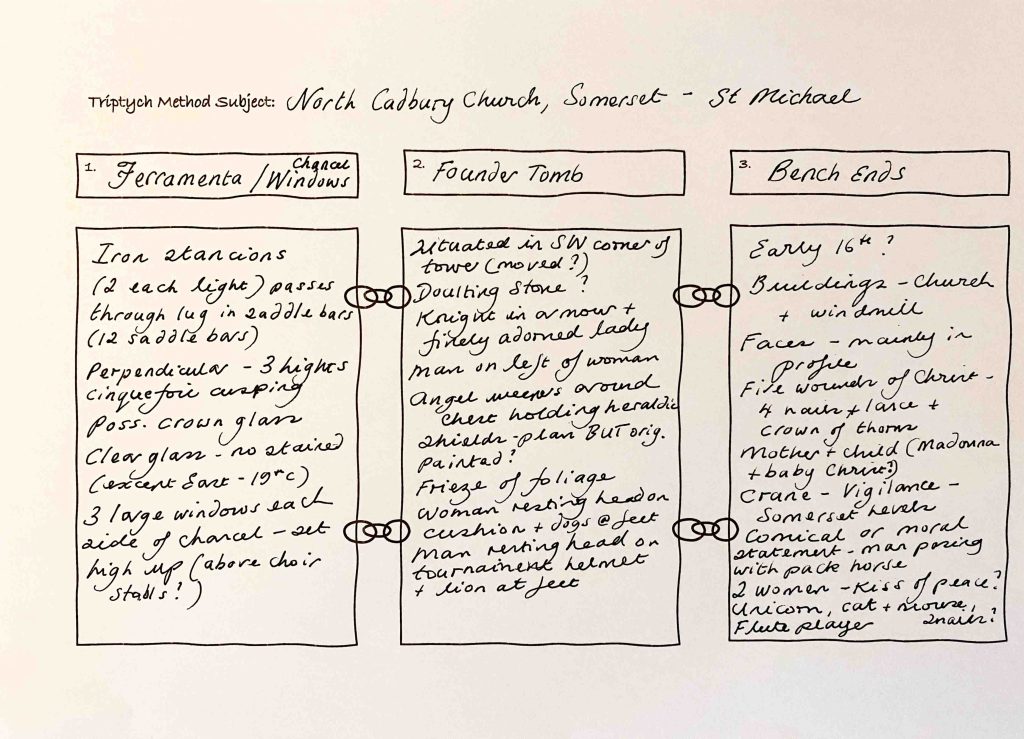 Triptych Method Subject: North Cadbury Church, Somerset - St Michael
1. Ferramenta / Chancel Windows
Iron stancions
(2 each light) passes
through lug in saddle bars
(12 saddle bars)
Perpendicular - 3 lights
cinquefoic cusping
Poss. crown glass
Clear glass - no stained
(except East - 19thc)
3 large windows each
side of chancel - set
high up (above choir
stalls?)
2. Founder Tomb
Situated in SW corner of
tower (moved?)
Doulting Stone ?
Knight in armour +
finely adorned lady
man on left of woman
Angel weepers around
chest holding heraldic
shields - plan BUT orig.
painted?
Frieze of foliage
Woman resting head on
cushion + dogs @ feet
Man resting head on
tournament helmet
+ lion at feet
3. Bench Ends
Early 16th ?
Buildings - Church
+ windmill
Faces - mainly in
profile
Five wounds of Christ -
4 nails + lance +
crown of thorns
Mother + child (Madonna
+ baby Christ?)
Crane - Vigilance -
Somerset Levels
Comical or moral
statement - man posing
with pack horse
2 women - Kiss of peace?
Unicorn, cat + mouse,
Flute player snails?